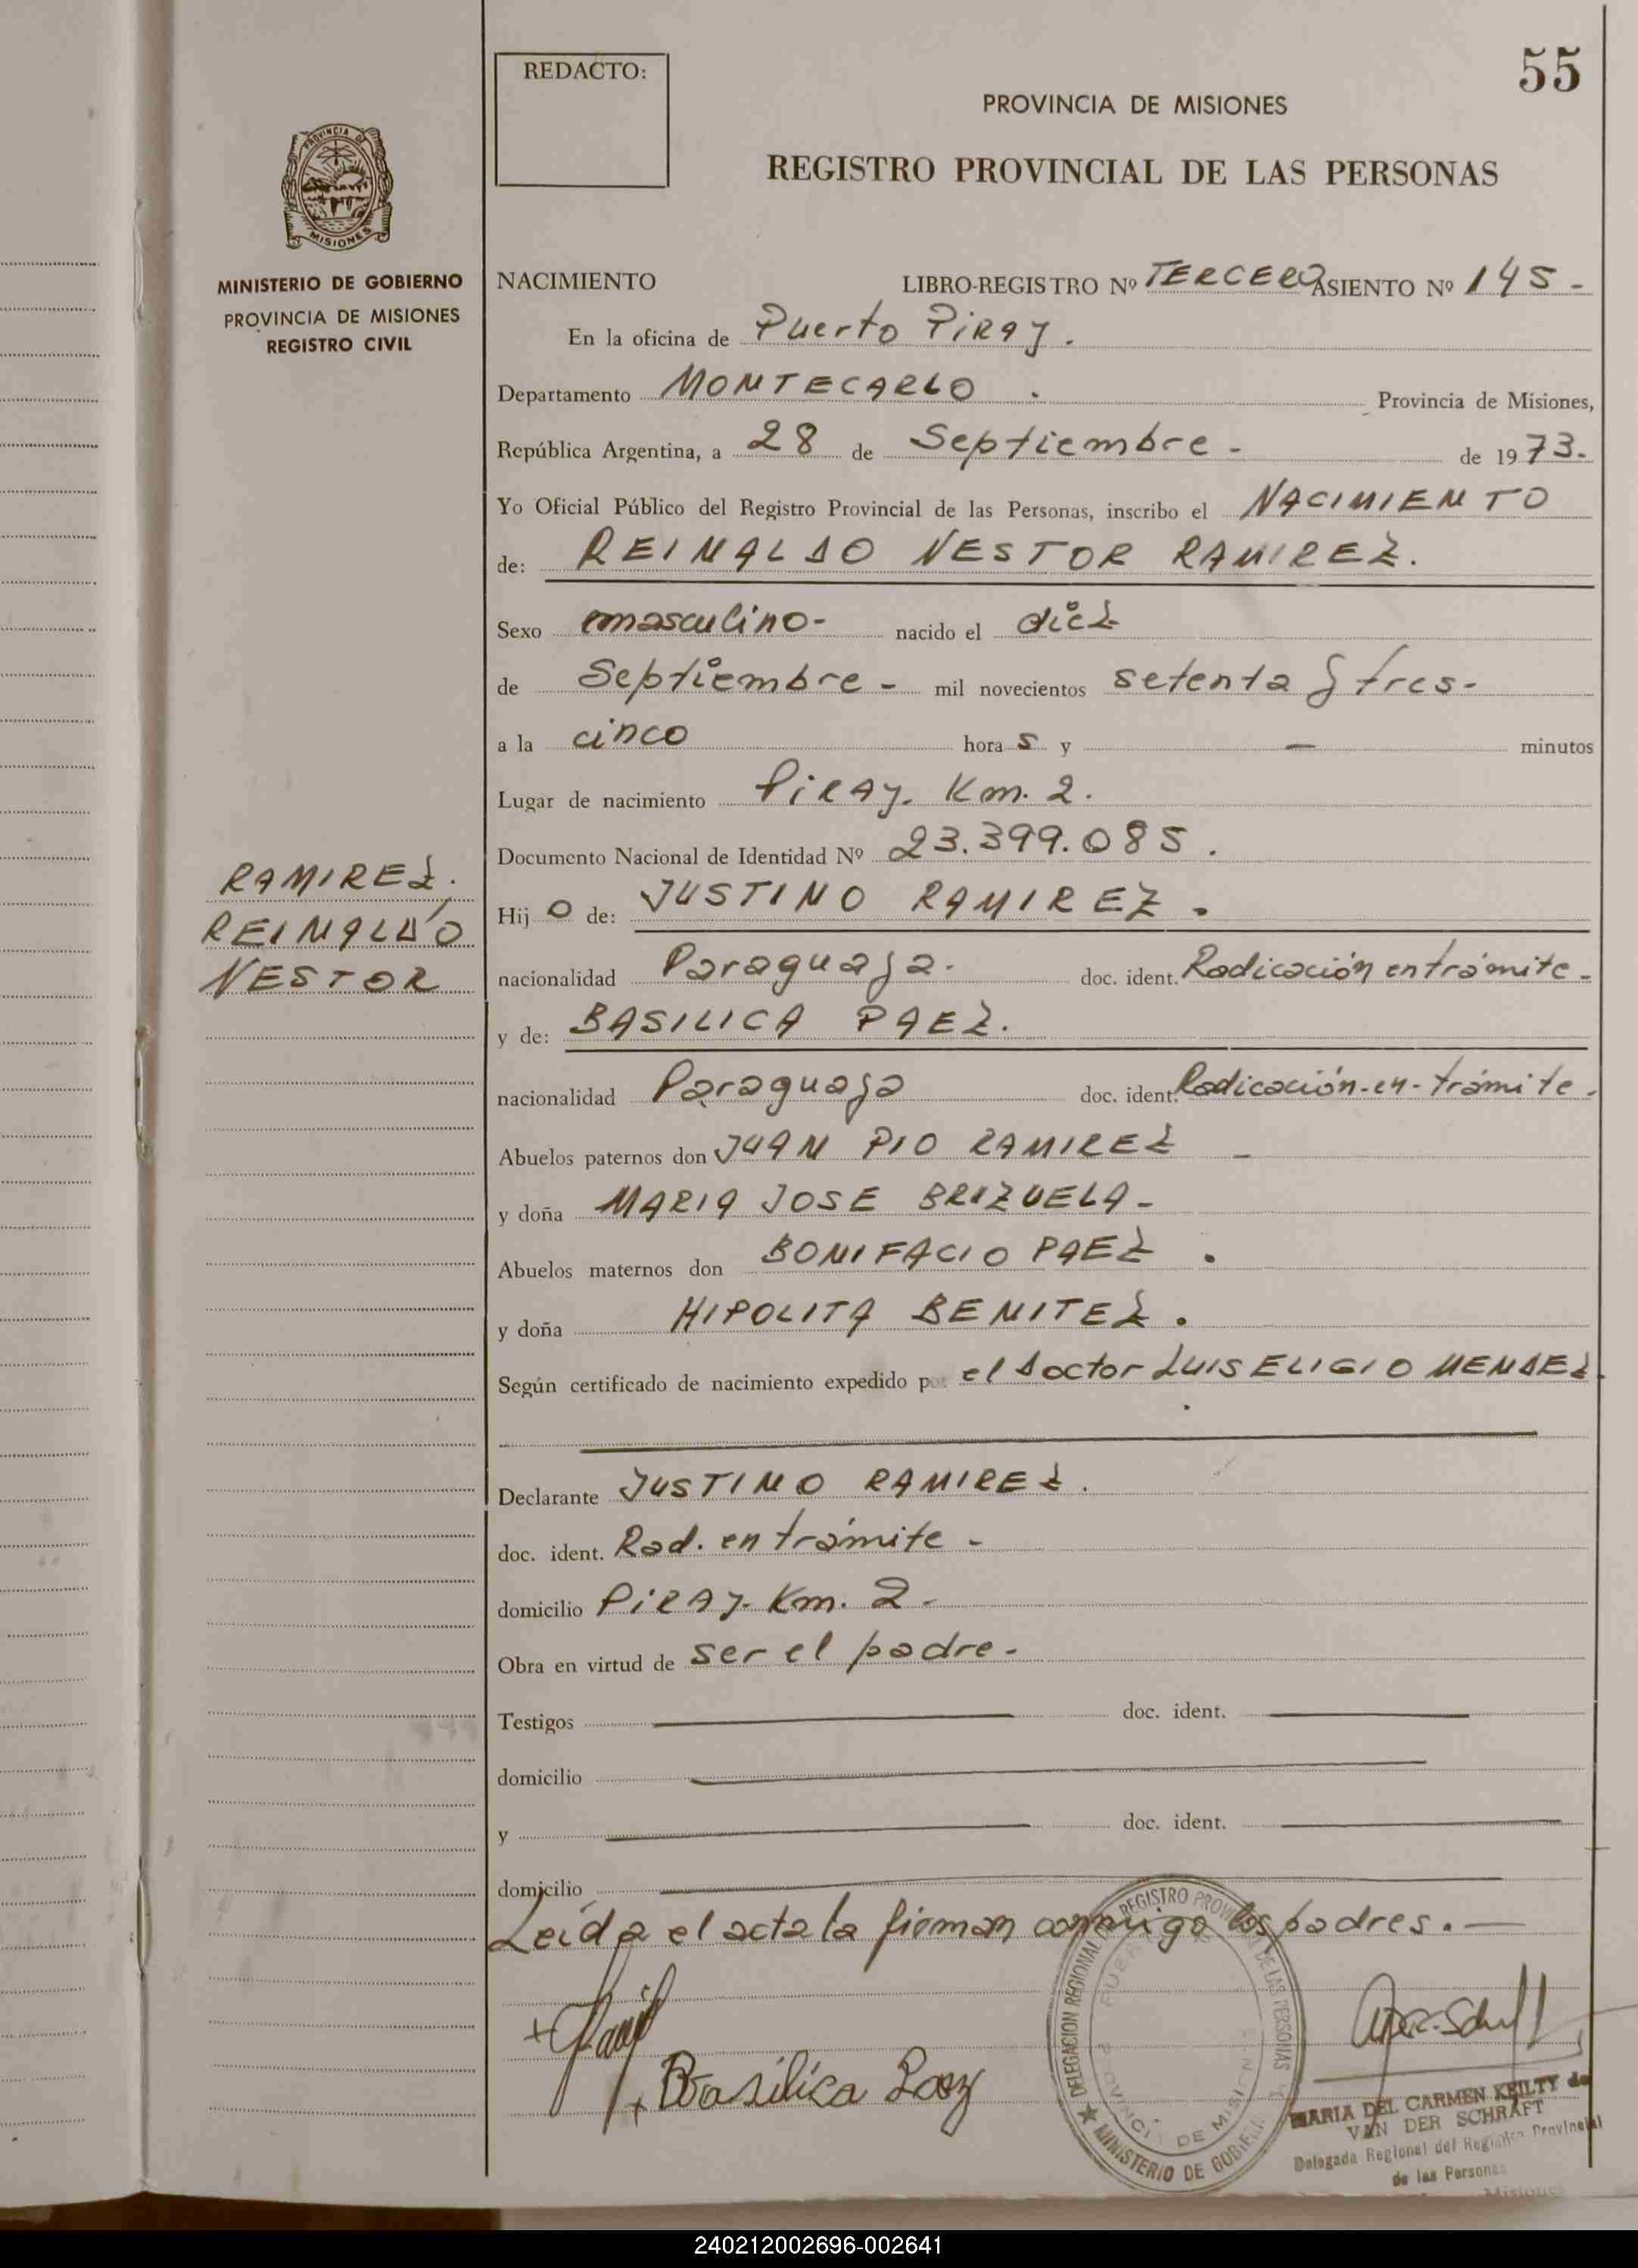 55
REDACTO:
PROVINCIA DE MISIONES
REGISTRO PROVINCIAL DE LAS PERSONAS
PROVINCIA DE
MISIONES
MINISTERIO DE GOBIERNO
PROVINCIA DE MISIONES
REGISTRO CIVIL
NACIMIENTO LIBRO-REGISTRO Nº TERCERO ASIENTO Nº 145 -
En la oficina de Puerto Piray.
Departamento MONTECARLO . Provincia de Misiones,
República Argentina, a 28 de Septiembre - de 1973.-
Yo Oficial Público del Registro Provincial de las Personas, inscribo el NACIMIENTO
de: REINALDO NESTOR RAMIREZ.
Sexo masculino- nacido el diez
de Septiembre - mil novecientos setenta y tres-
a la cinco hora s y — minutos
Lugar de nacimiento Piray. Km. 2.
Documento Nacional de Identidad Nº 23.399.085.
RAMIREZ.
REINALDO
NESTOR
Hij o de: JUSTINO RAMIREZ .
nacionalidad Paraguaya. doc. ident. Radicación en trámite-
y de: BASILICA PAEZ.
nacionalidad Paraguaya doc. ident. Radicación-en-trámite.
Abuelos paternos don JUAN PIO RAMIREZ -
y doña MARIA JOSE BRIZUELA-
Abuelos maternos don BONIFACIO PAEZ .
y doña HIPOLITA BENITEZ .
Según certificado de nacimiento expedido por el Doctor LUIS ELIGIO MENDEZ.
Declarante JUSTINO RAMIREZ.
doc. ident. Rad. en trámite -
domicilio Piray- Km. 2-
Obra en virtud de ser el padre-
Testigos doc. ident.
domicilio
y doc. ident.
domicilio
Leída el acta la firman conmigo los padres.—
+ Basilica Paez
DELEGACION REGIONAL DEL REGISTRO PROVINCIAL DE LAS PERSONAS
MINISTERIO DE GOBIERNO
PROVINCIA DE MISIONES
MARIA DEL CARMEN KEILTY de
VAN DER SCHRAFT
Delegada Regional del Registro Provincial
de las Personas
Misiones
240212002696-002641